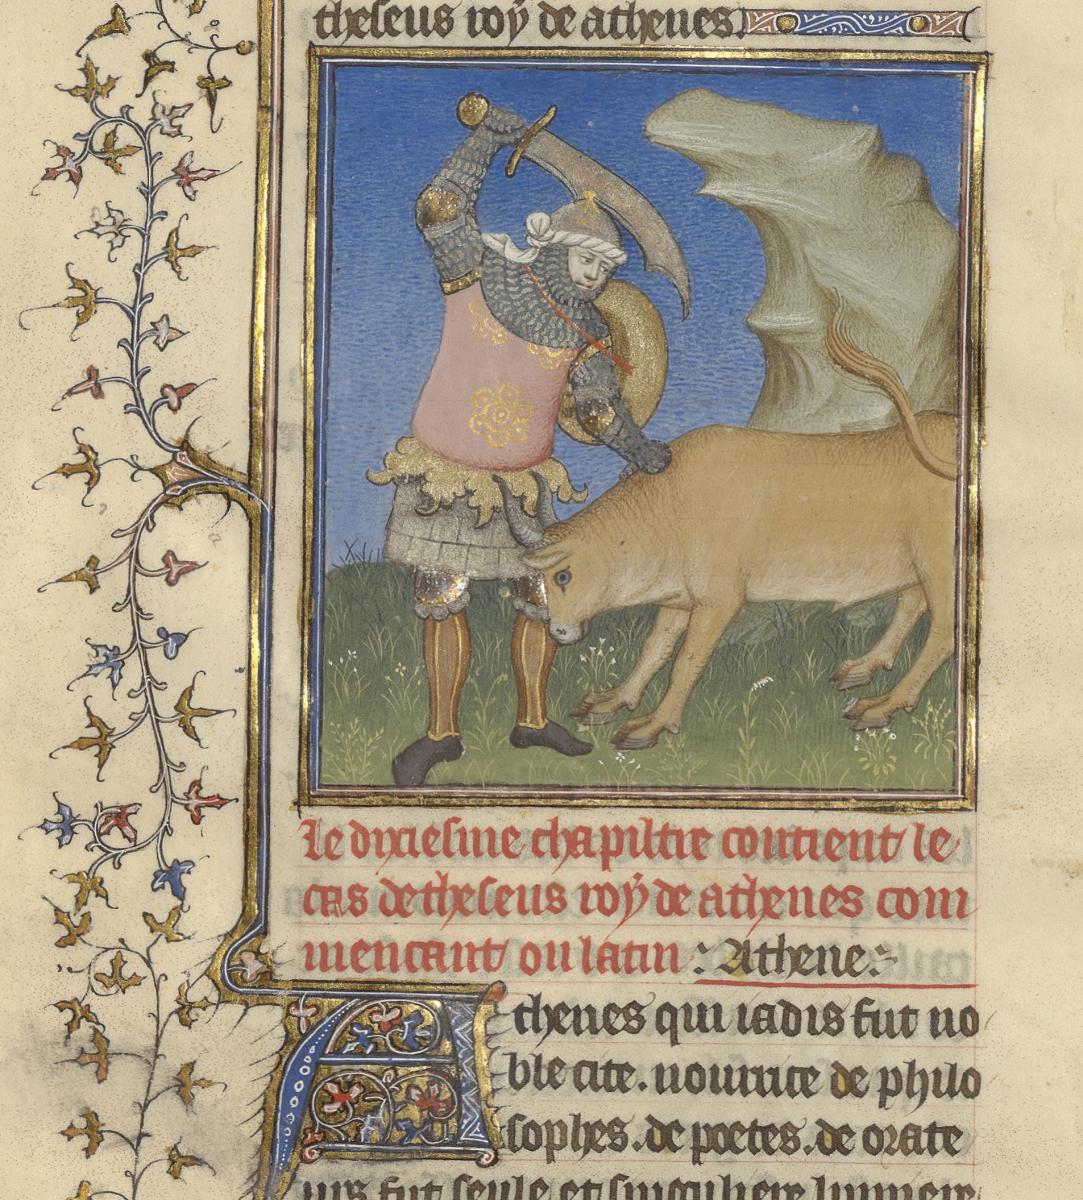 theseus roy de athenes.
Le dixiesme chapiltre contient le
cas de theseus roy de athenes com
mencant ou latin : Athene :
Athenes qui iadis fut no
ble cite. nourrice de philo
sophes. de poetes. de orate
urs fut seule et singuliere lumiere